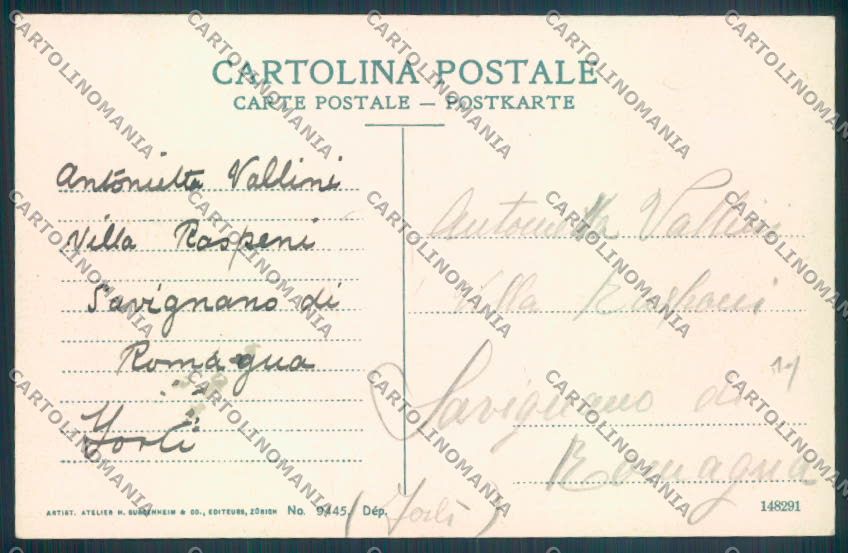 CARTOLINA POSTALE
CARTE POSTALE — POSTKARTE
Antonietta Vallini
Villa Raspeni
Savignano di
Romagna
Forlì
Antonietta Vallini
Villa Rasponi
Savignano di
Romagna
(Forlì)
ARTIST. ATELIER H. GUGGENHEIM & CO., EDITEURS, ZÜRICH No. 9445. Dép.
148291
CARTOLINOMANIA